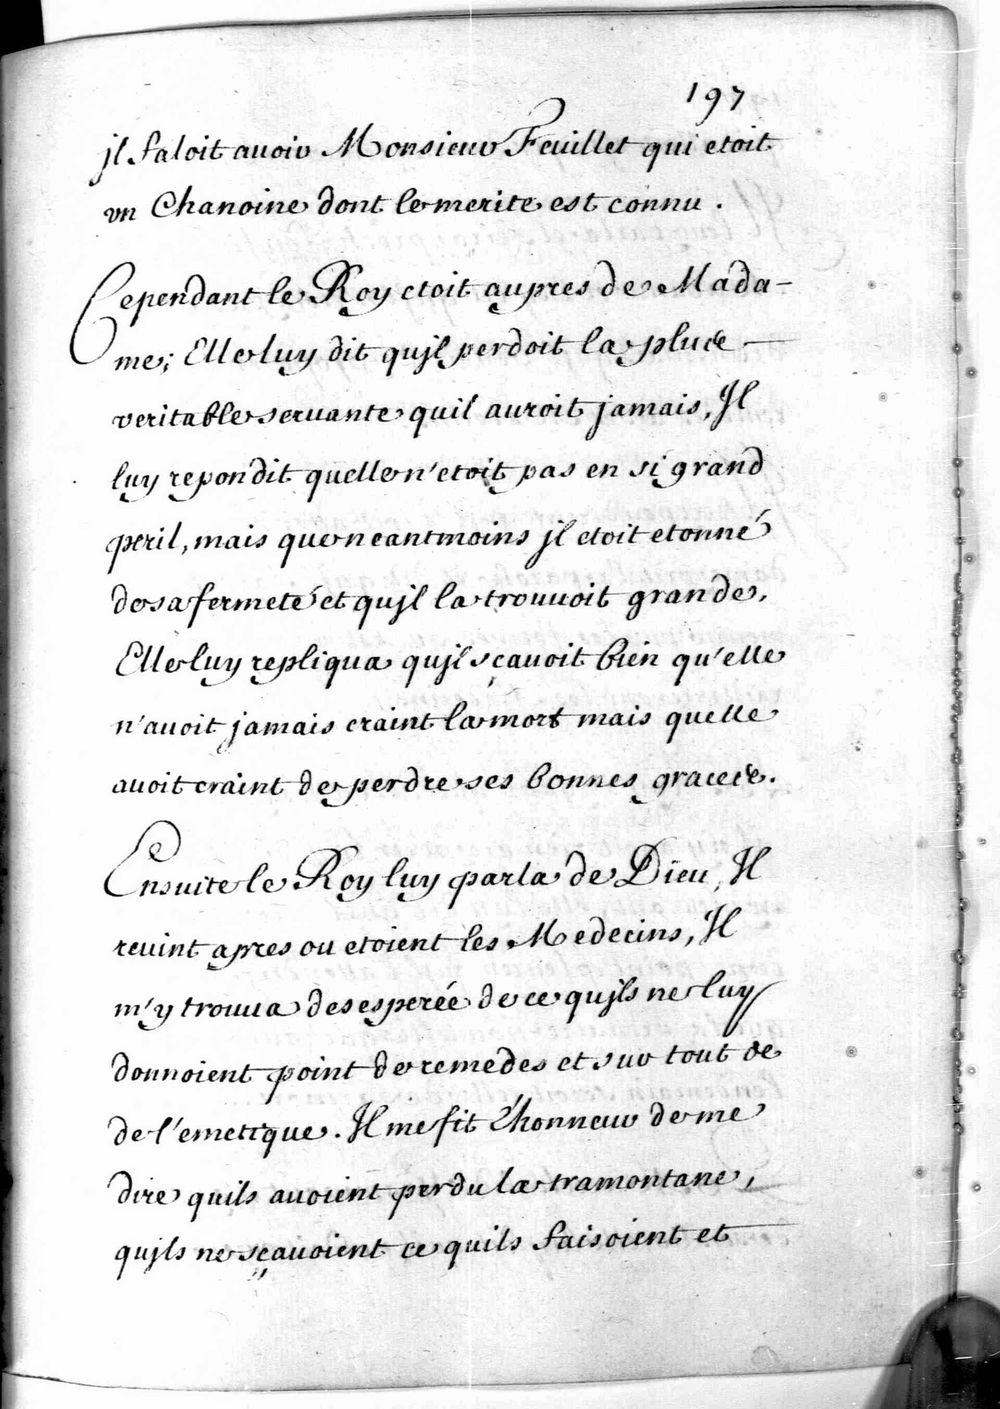 197
jl faloit auoir Monsieur Feuillet qui etoit
vn Chanoine dont le merite est connu.
Cependant le Roy etoit aupres de Mada-
me; Elle luy dit qujl perdoit la plus
veritable seruante quil auroit jamais, Jl
luy repondit quelle n'etoit pas en si grand
peril, mais que neantmoins jl etoit etonné
de sa fermeté et qujl la trouuoit grande,
Elle luy repliqua qujl sçauoit bien qu'elle
n'auoit jamais craint la mort mais quelle
auoit craint de perdre ses bonnes graces.
Ensuite le Roy luy parla de Dieu, Jl
reuint apres ou etoient les Medecins, Jl
m'y trouua desesperée de ce qujls ne luy
donnoient point de remedes et sur tout de
de l'emetique. Jl me fit l'honneur de me
dire quils auoient perdu la tramontane,
qujls ne sçauoient ce quils faisoient et